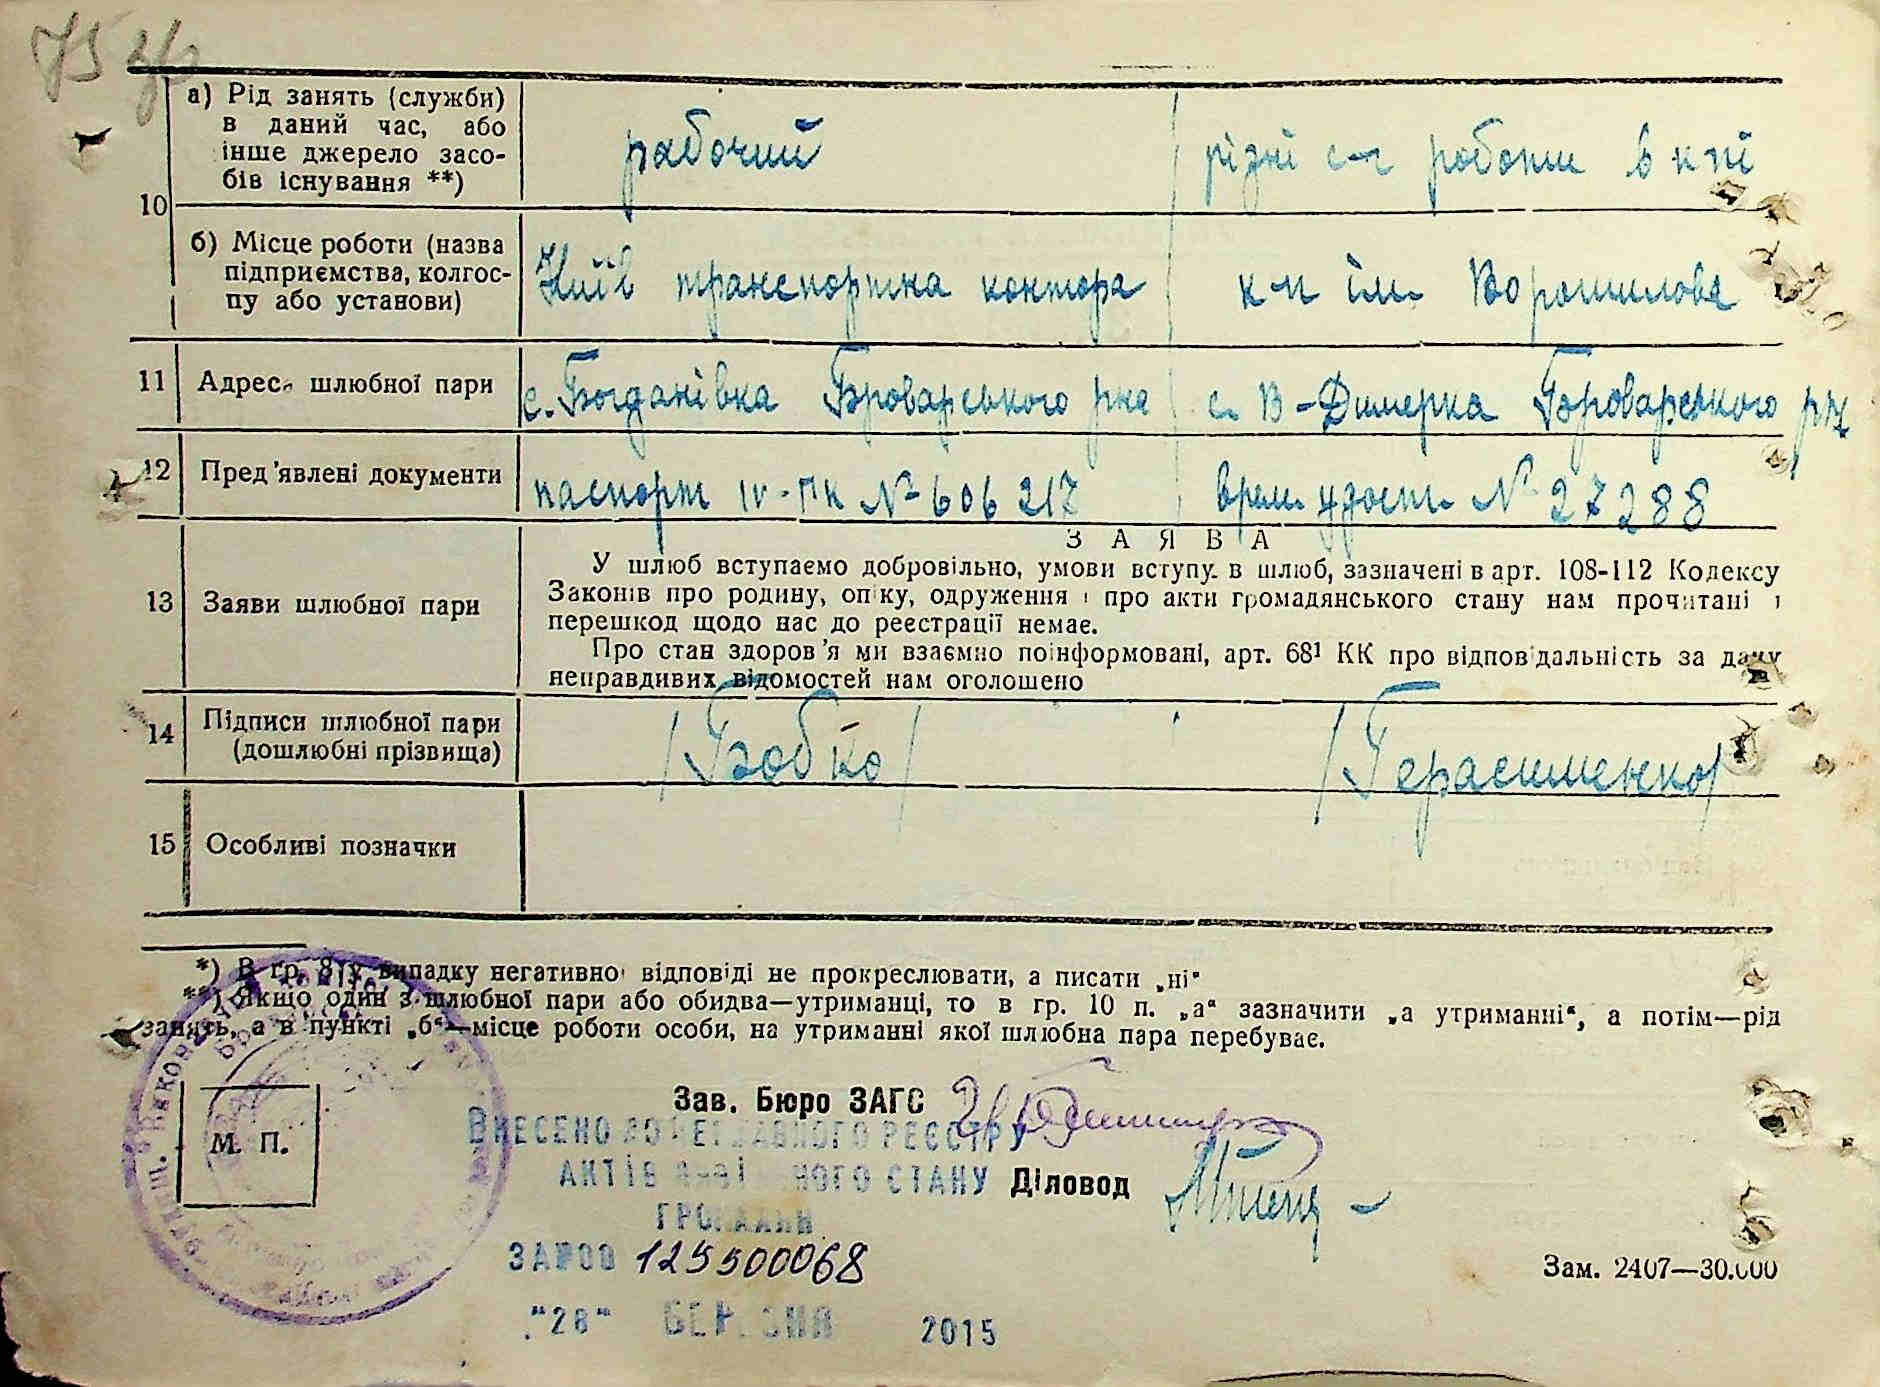 75
10
а) Рід занять (служби)
в даний час, або
інше джерело засо-
бів існування **)
рабочий
різні с-г роботи в к-пі
б) Місце роботи (назва
підприємства, колгос-
пу або установи)
Київ транспортна контора
к-п ім. Ворошилова
11
Адреса шлюбної пари
с. Богданівка Броварського р-на
с. В-Димерка Броварського р-н
12
Пред'явлені документи
паспорт IV-ПК № 606217
врем удост № 27288
13
Заяви шлюбної пари
ЗАЯВА
У шлюб вступаємо добровільно, умови вступу в шлюб, зазначені в арт. 108-112 Кодексу
Законів про родину, опіку, одруження і про акти громадянського стану нам прочитані і
перешкод щодо нас до реєстрації немає.
Про стан здоров'я ми взаємно поінформовані, арт. 68¹ КК про відповідальність за дачу
неправдивих відомостей нам оголошено
14
Підписи шлюбної пари
(дошлюбні прізвища)
/Бобко/
/Герасименко/
15
Особливі позначки
*) В гр. 8 у випадку негативної відповіді не прокреслювати, а писати „ні“
**) Якщо один з шлюбної пари або обидва—утриманці, то в гр. 10 п. „а“ зазначити „а утриманні“, а потім—рід
занять, а в пункті „б“—місце роботи особи, на утриманні якої шлюбна пара перебуває.
М. П.
Зав. Бюро ЗАГС
ВНЕСЕНО ДО ДЕРЖАВНОГО РЕЄСТРУ
АКТІВ ЦИВІЛЬНОГО СТАНУ
Діловод
ГРОМАДЯН
ЗА №00 125500068
"28" БЕРЕЗНЯ 2015
Зам. 2407—30.000